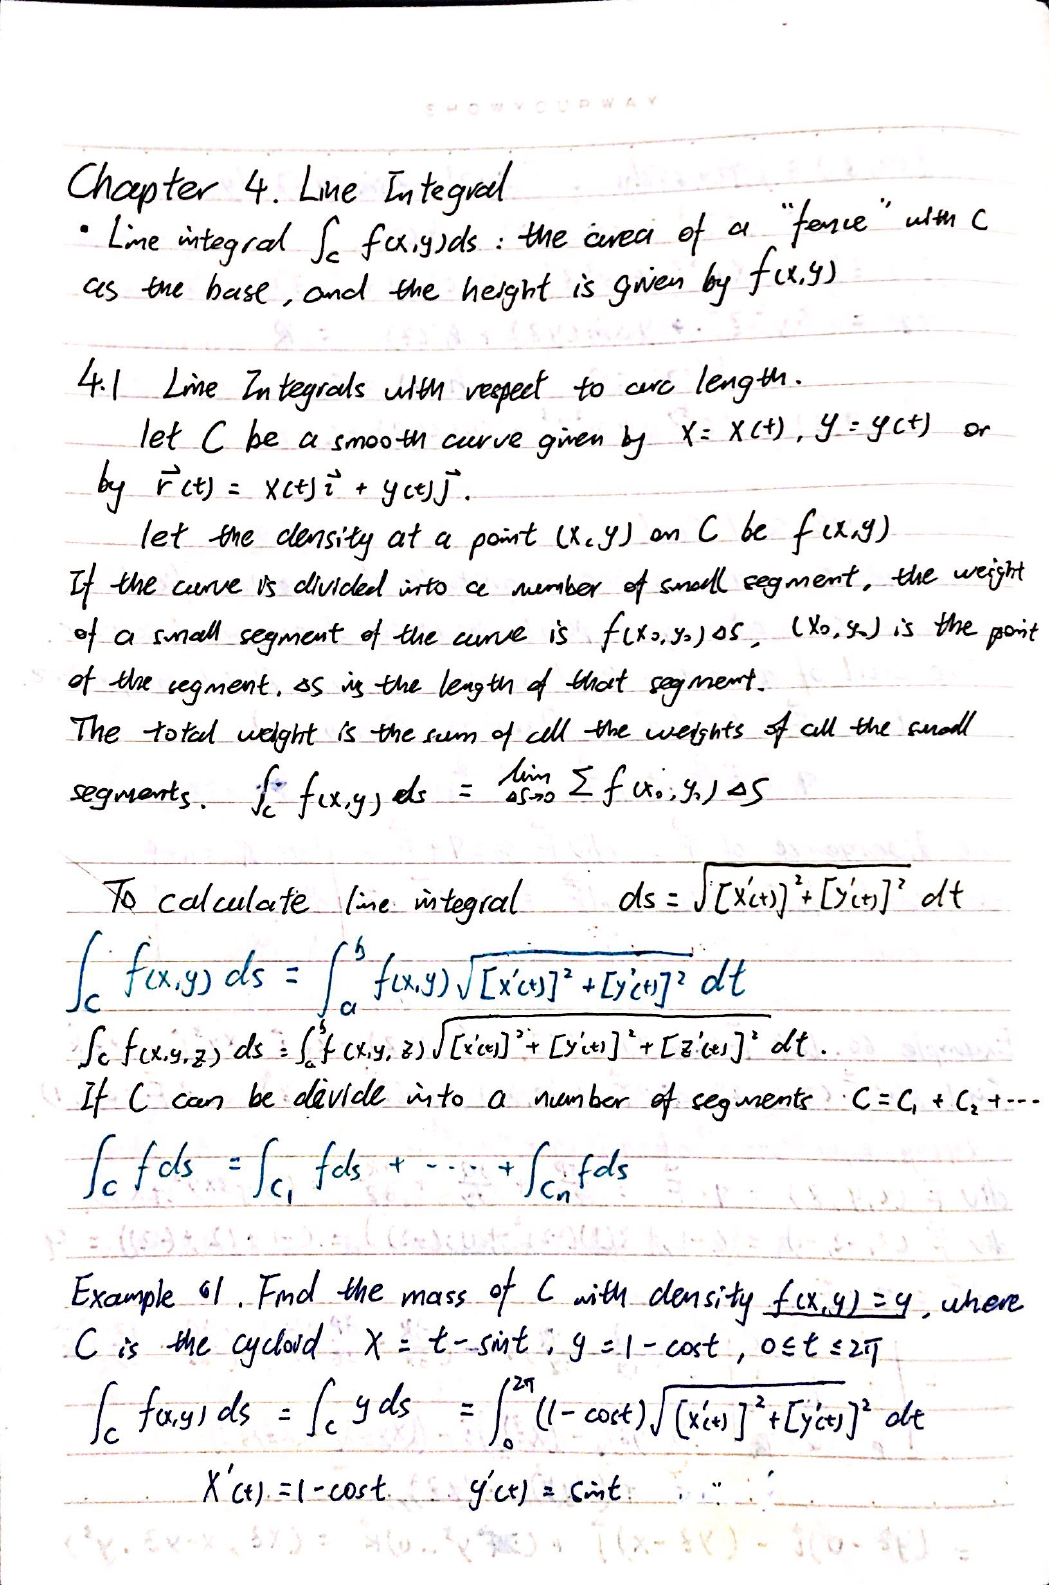 SHOWYOURWAY
Chapter 4. Line Integral
• Line integral ∫_C f(x,y)ds : the area of a "fence" with C
as the base, and the height is given by f(x,y)
4.1 Line Integrals with respect to arc length.
let C be a smooth curve given by x = x(t), y = y(t) or
by r⃗(t) = x(t)i⃗ + y(t)j⃗.
let the density at a point (x,y) on C be f(x,y)
If the curve is divided into a number of small segment, the weight
of a small segment of the curve is f(x₀,y₀)ΔS, (x₀,y₀) is the point
of the segment, ΔS is the length of that segment.
The total weight is the sum of all the weights of all the small
segments. ∫_C f(x,y) ds = lim_{ΔS→0} Σ f(x₀,y₀) ΔS
To calculate line integral ds = √([x'(t)]² + [y'(t)]²) dt
∫_C f(x,y) ds = ∫_a^b f(x,y) √([x'(t)]² + [y'(t)]²) dt
∫_C f(x,y,z) ds = ∫_a^b f(x,y,z) √([x'(t)]² + [y'(t)]² + [z'(t)]²) dt.
If C can be divide into a number of segments C = C₁ + C₂ + ---
∫_C fds = ∫_{C₁} fds + ---- + ∫_{Cn} fds
Example 61. Find the mass of C with density f(x,y) = y, where
C is the cycloid x = t - sint, y = 1 - cost, 0 ≤ t ≤ 2π
∫_C f(x,y) ds = ∫_C y ds = ∫_0^{2π} (1 - cost) √([x'(t)]² + [y'(t)]²) dt
x'(t) = 1 - cost y'(t) = sint